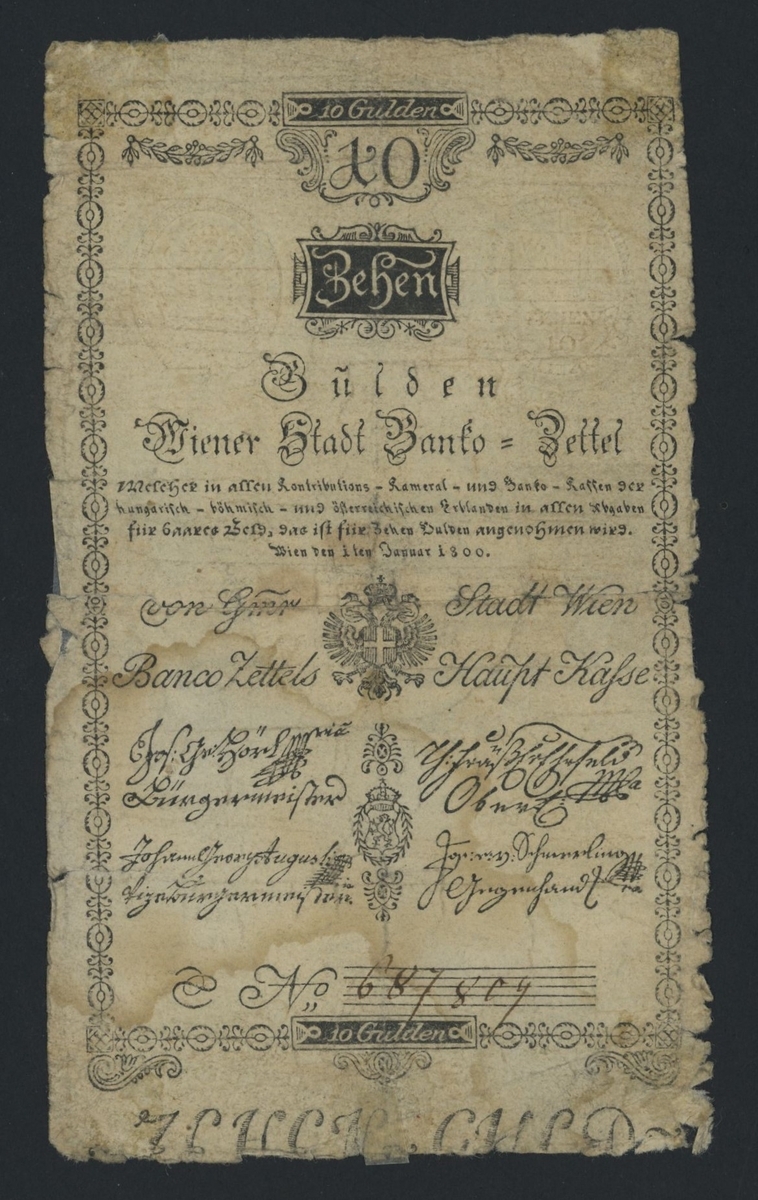 10 Gulden
10
Zehen
Gulden
Wiener Stadt Banko = Zettel
Welcher in allen Kontributions - Kameral - und Banko - Kassen der
hungarisch - böhmisch - und österreichischen Erblanden in allen Abgaben
für baares Geld, das ist für Zehen Gulden angenohmen wird.
Wien den 1ten Januar 1800.
von Gmr Stadt Wien
Banco Zettels Haupt Kasse
Jos: Gr: Hörl
Bürgermeister
Johann Georg Augusti
Vizebürgermeister
v: Schmerling
Gegenhand
No 687809
10 Gulden